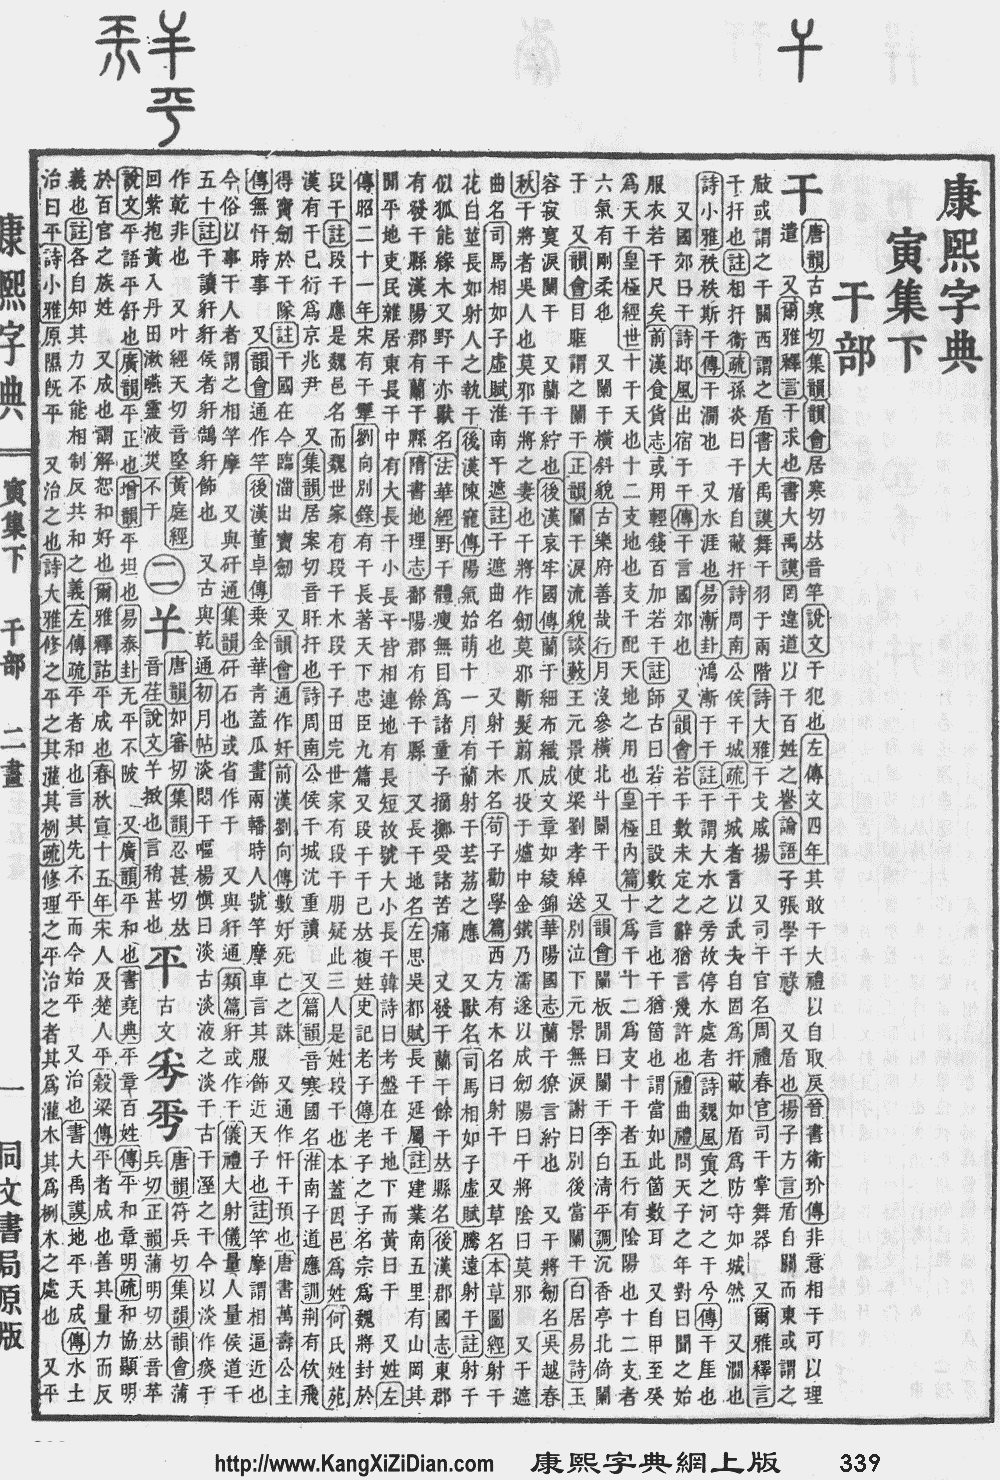 康熙字典
寅集下
干部
干
唐韻古寒切集韻韻會居寒切𠀤音竿說文干犯也左傳文四年其敢干大禮以自取戾晉書衛玠傳非意相干可以理
遣 又爾雅釋言干求也書大禹謨罔違道以干百姓之譽論語子張學干祿 又盾也揚子方言盾自關而東或謂之
瞂或謂之干關西謂之盾書大禹謨舞干羽于兩階詩大雅干戈戚揚 又司干官名周禮春官司干掌舞器 又爾雅釋言
干扞也註相扞衞疏孫炎曰干盾自蔽扞詩周南公侯干城疏干城者言以武夫自固爲扞蔽如盾爲防守如城然 又澗也
詩小雅秩秩斯干傳干澗也 又水涯也易漸卦鴻漸于干註干謂大水之旁故停水處者詩魏風寘之河之干兮傳干厓也
又國郊曰干詩邶風出宿于干傳干言國郊也 又韻會若干數未定之辭猶言幾許也禮曲禮問天子之年對曰聞之始
服衣若干尺矣前漢食貨志或用輕錢百加若干註師古曰若干且設數之言也干猶箇也謂當如此箇數耳 又自甲至癸
爲天干皇極經世十干天也十二支地也支干配天地之用也皇極內篇十爲干十二爲支十干者五行有陰陽也十二支者
六氣有剛柔也 又闌干橫斜貌古樂府善哉行月沒參橫北斗闌干 又韻會闌板閒曰闌干李白清平調沉香亭北倚闌
干 又韻會目眶謂之闌干正韻闌干淚流貌談藪王元景使梁劉孝綽送別泣下元景無淚謝曰別後當闌干白居易詩玉
容寂寞淚闌干 又蘭干紵也後漢哀牢國傳蘭干細布織成文章如綾錦華陽國志蘭干獠言紵也 又干將劒名吳越春
秋干將者吳人也莫邪干將之妻也干將作劒莫邪斷髮翦爪投于爐中金鐵乃濡遂以成劒陽曰干將陰曰莫邪 又干遮
曲名司馬相如子虛賦淮南干遮註干遮曲名也 又射干木名荀子勸學篇西方有木名曰射干 又草名本草圖經射干
花白莖長如射人之執干後漢陳寵傳陽氣始萌十一月有蘭射干芸荔之應 又獸名司馬相如子虛賦騰遠射干註射干
似狐能緣木又野干亦獸名法華經野干體瘦無目爲諸童子摘擲受諸苦痛 又發干蘭干餘干𠀤縣名後漢郡國志東郡
有發干縣漢陽郡有蘭干縣隋書地理志鄱陽郡有餘干縣 又長干地名左思吳都賦長干延屬註建業南五里有山岡其
閒平地吏民雜居東長干中有大長干小長干皆相連地有長短故號大小長干韓詩曰考盤在干地下而黃曰干 又姓左
傳昭二十一年宋有干犨劉向別錄有干長著天下忠臣九篇 又段干干己𠀤複姓史記老子傳老子之子名宗爲魏將封於
段干註段干應是魏邑名而魏世家有段干木段干子田完世家有段干朋疑此三人是姓段干也本蓋因邑爲姓何氏姓苑
漢有干已衍爲京兆尹 又集韻居案切音旰扞也詩周南公侯干城沈重讀 又篇韻音寒國名淮南子道應訓荆有佽飛
得寶劒於干隊註干國在今臨淄出寶劒 又韻會通作奸前漢劉向傳數奸死亡之誅 又通作忓干預也唐書萬壽公主
傳無忓時事 又韻會通作竿後漢董卓傳乘金華靑蓋瓜畫兩轓時人號竿摩車言其服飾近天子也註竿摩謂相逼近也
今俗以事干人者謂之相竿摩 又與矸通集韻矸石也或省作干 又與豻通類篇豻或作干儀禮大射儀量人量侯道干
五十註干讀豻豻侯者豻鵠豻飾也 又古與乾通初月帖淡悶干嘔楊愼曰淡古淡液之淡干古干溼之干今以淡作痰干
作乾非也 又叶經天切音堅黃庭經
回紫抱黃入丹田漱嚥靈液災不干
二
𢆉
唐韻如審切集韻忍甚切𠀤
音荏說文𢆉撖也言稍甚也
平
古文
唐韻符兵切集韻韻會蒲
兵切正韻蒲明切𠀤音苹
說文平語平舒也廣韻平正也增韻平坦也易泰卦无平不陂 又廣韻平和也書堯典平章百姓傳平和章明疏和協顯明
於百官之族姓 又成也謂解恕和好也爾雅釋詁平成也春秋宣十五年宋人及楚人平穀梁傳平者成也善其量力而反
義也註各自知其力不能相制反共和之義左傳疏平者和也言其先不平而今始平 又治也書大禹謨地平天成傳水土
治曰平詩小雅原隰旣平 又治之也詩大雅修之平之其灌其栵疏修理之平治之者其爲灌木其爲栵木之處也 又平
康熙字典 寅集下 干部 二畫 一 同文書局原版
http://www.KangXiZiDian.com 康熙字典網上版 339